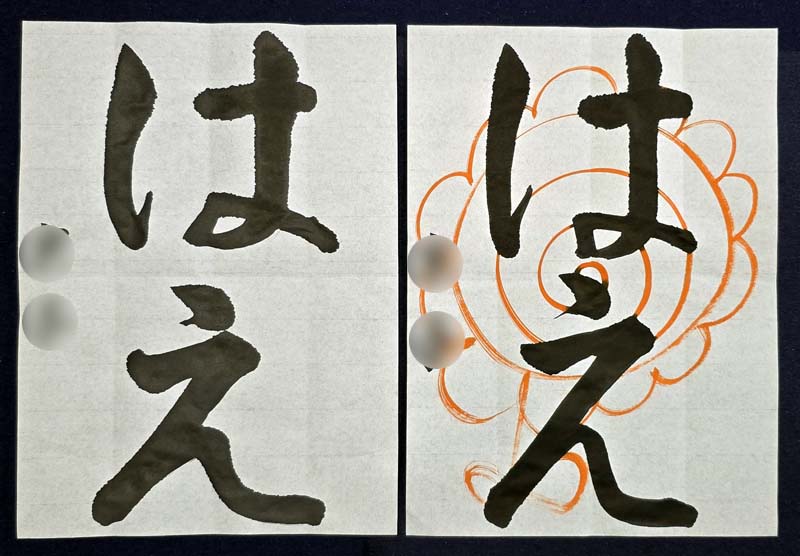 はえ
はえ